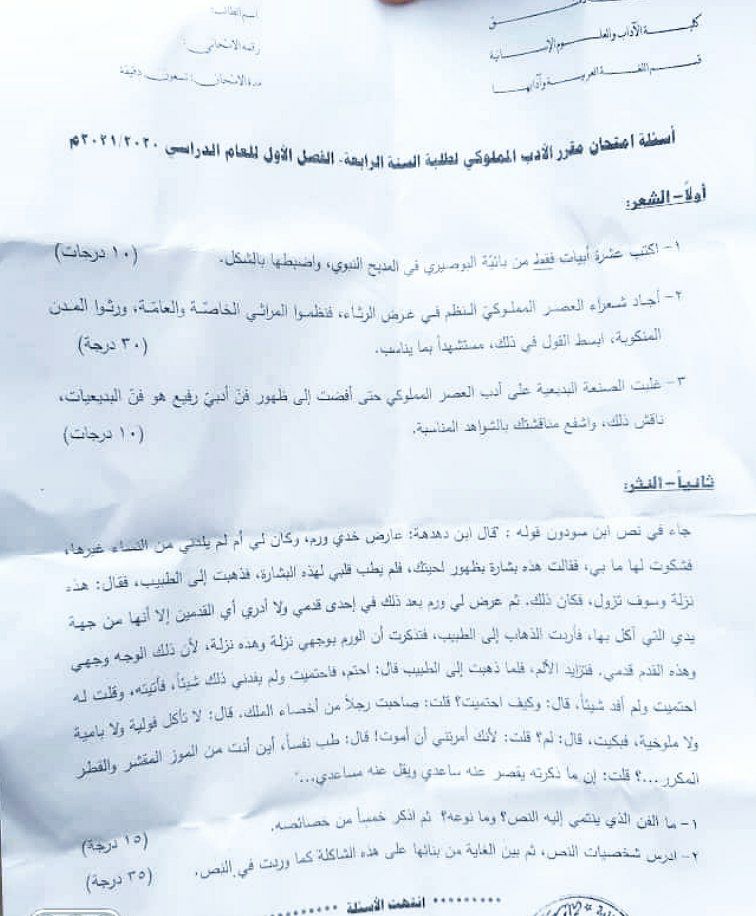 كليـــة الآداب والعلـــوم الإنســـانية
قســـم اللغـــة العربيـــة وآدابهـــا
اسم الطالب:
رقمه الامتحاني:
مدة الامتحان: تسعون دقيقة
أسئلة امتحان مقرر الأدب المملوكي لطلبة السنة الرابعة- الفصل الأول للعام الدراسي ٢٠٢١/٢٠٢٠م
أولاً- الشعر:
١- اكتب عشرة أبيات فقط من بائيّة البوصيري في المديح النبوي، واضبطها بالشكل. (١٠ درجات)
٢- أجاد شعراء العصر المملوكيّ النظم في غرض الرثاء، فنظموا المراثي الخاصّة والعامّة، ورثوا المدن
المنكوبة، ابسط القول في ذلك، مستشهداً بما يناسب. (٣٠ درجة)
٣- غلبت الصنعة البديعية على أدب العصر المملوكي حتى أفضت إلى ظهور فنّ أدبيّ رفيع هو فنّ البديعيات،
ناقش ذلك، واشفع مناقشتك بالشواهد المناسبة. (١٠ درجات)
ثانياً- النثر:
جاء في نص ابن سودون قوله : "قال ابن دهدهة: عارض خدي ورم، وكان لي أم لم يلدني من النساء غيرها،
فشكوت لها ما بي، فقالت هذه بشارة بظهور لحيتك، فلم يطب قلبي لهذه البشارة، فذهبت إلى الطبيب، فقال: هذه
نزلة وسوف تزول، فكان ذلك. ثم عرض لي ورم بعد ذلك في إحدى قدمي ولا أدري أي القدمين إلا أنها من جهة
يدي التي آكل بها، فأردت الذهاب إلى الطبيب، فتذكرت أن الورم بوجهي نزلة وهذه نزلة، لأن ذلك الوجه وجهي
وهذه القدم قدمي. فتزايد الألم، فلما ذهبت إلى الطبيب قال: احتم، فاحتميت ولم يفدني ذلك شيئاً، فأتيته، وقلت له
احتميت ولم أفد شيئاً، قال: وكيف احتميت؟ قلت: صاحبت رجلاً من أخصاء الملك. قال: لا تأكل فولية ولا بامية
ولا ملوخية، فبكيت، قال: لم؟ قلت: لأنك أمرتني أن أموت! قال: طب نفساً، أين أنت من الموز المقشر والقطر
المكرر ...؟ قلت: إن ما ذكرته يقصر عنه ساعدي ويقل عنه مساعدي..."
١- ما الفن الذي ينتمي إليه النص؟ وما نوعه؟ ثم اذكر خمساً من خصائصه. (١٥ درجة)
٢- ادرس شخصيات النص، ثم بين الغاية من بنائها على هذه الشاكلة كما وردت في النص. (٣٥ درجة)
********* انتهت الأسئلة *********